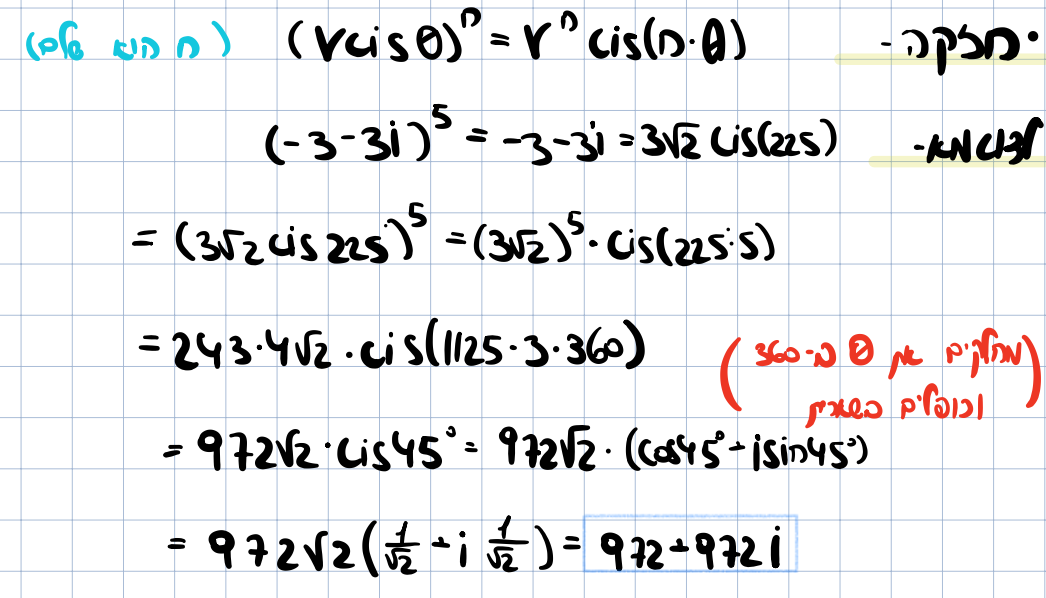 ·חזקה- (r cis θ)ⁿ = rⁿ cis(n·θ) (n הוא שלם)
לדוגמא- (-3-3i)⁵ = -3-3i = 3√2 cis(225)
= (3√2 cis 225)⁵ = (3√2)⁵ · cis(225·5)
= 243·4√2 · cis(1125·3·360)
(מחלקים את θ ב-360
וכופלים בשארית)
= 972√2 · cis45° = 972√2 · (cos45°+isin45°)
= 972√2 (1/√2 + i 1/√2) = 972+972i